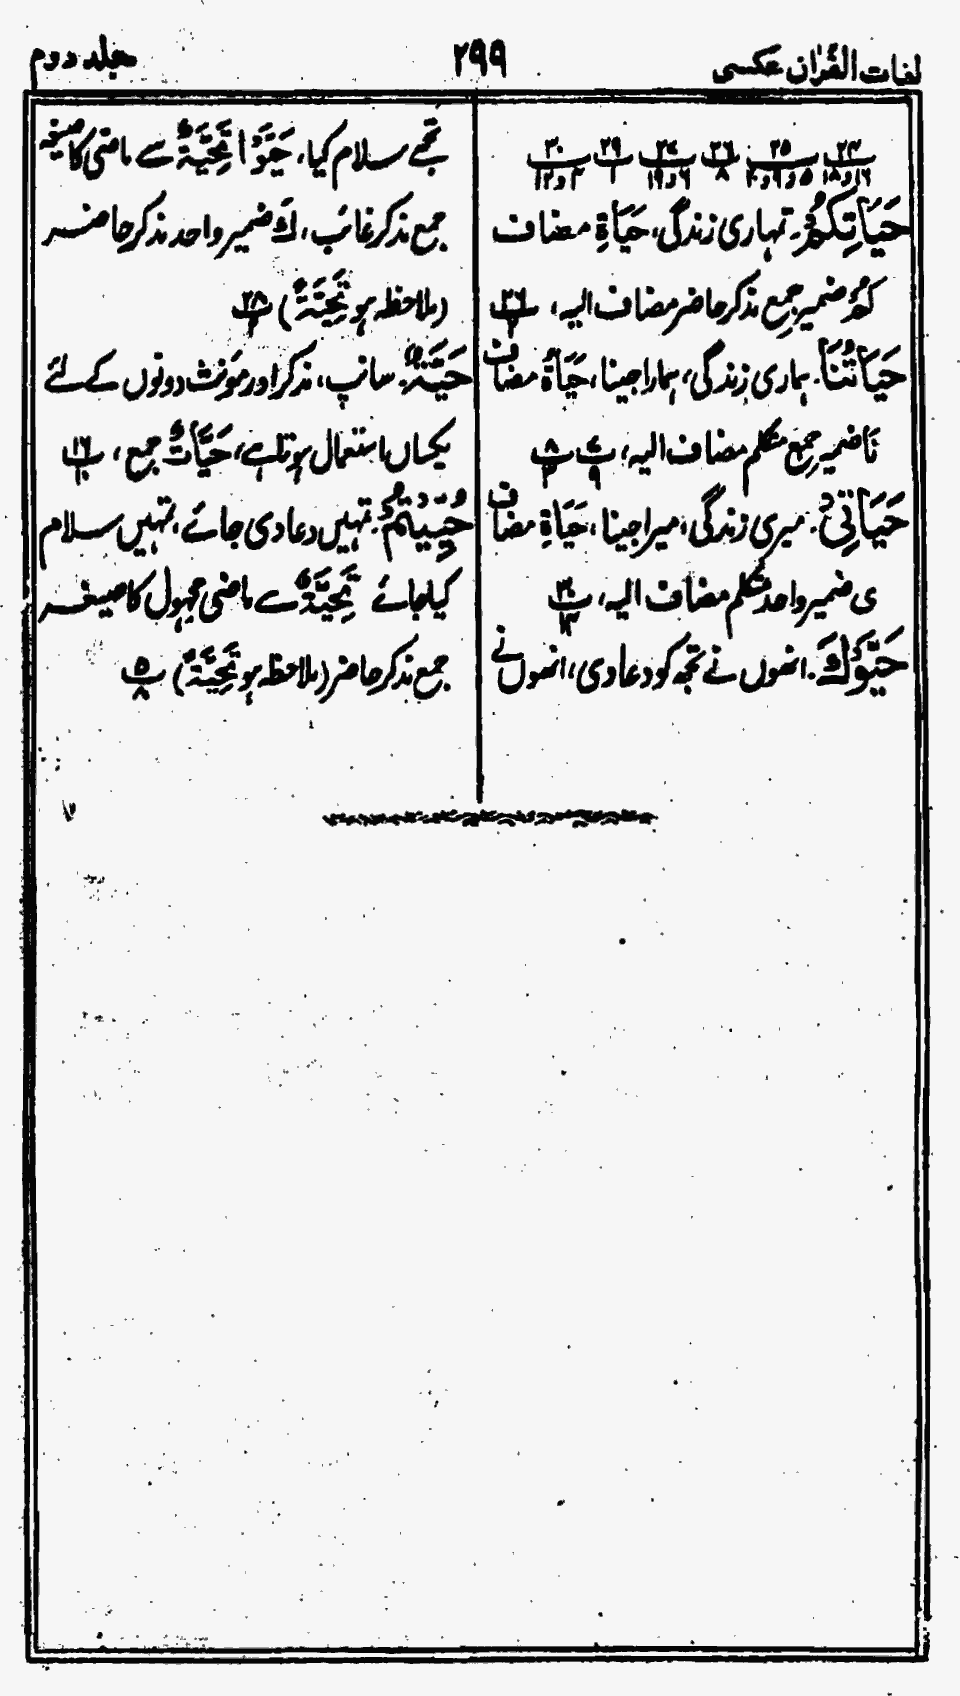 لغات القرآن عکسی
۲۹۹
جلد دوم
حَیَاتِکُمْ۔ تمہاری زندگی، حَیَاۃِ مضاف
کُمْ ضمیر جمع مذکر حاضر مضاف الیہ،
حَیَاتُنَا۔ ہماری زندگی، ہمارا جینا، حَیَاۃُ مضاف
نَا ضمیر جمع متکلم مضاف الیہ،
حَیَاتِیْ۔ میری زندگی، میرا جینا، حَیَاۃِ مضاف
ی ضمیر واحد متکلم مضاف الیہ،
حَیَّوْكَ۔ انھوں نے تجھ کو دعا دی، انھوں نے
تجھے سلام کیا، حَیَّوْا تَحِیَّۃٌ سے ماضی کا صیغہ
جمع مذکر غائب، كَ ضمیر واحد مذکر حاضر
(ملاحظہ ہو تَحِیَّۃٌ) پ۲۸
حَیَّۃٌ۔ سانپ، مذکر اور مؤنث دونوں کے لئے
یکساں استعمال ہوتا ہے، حَیَّاتٌ جمع، پ۱۶
حُیِّیْتُمْ۔ تمہیں دعا دی جائے، تمہیں سلام
کیا جائے تَحِیَّۃٌ سے ماضی مجہول کا صیغہ
جمع مذکر حاضر (ملاحظہ ہو تَحِیَّۃٌ) پ۵ ۸